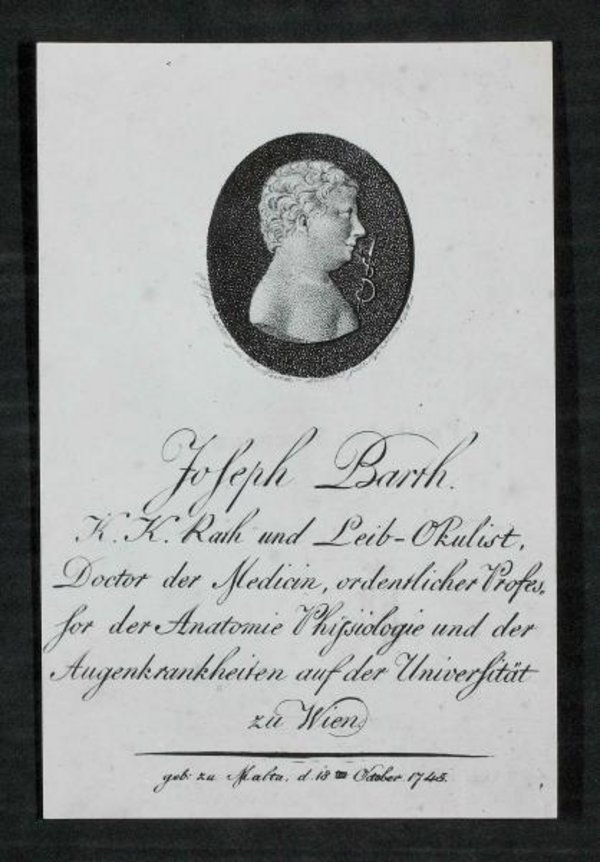 Joseph Barth.
K. K. Rath und Leib-Okulist,
Doctor der Medicin, ordentlicher Profes,
sor der Anatomie Phisiologie und der
Augenkrankheiten auf der Universität
zu Wien
geb: zu Malta. d. 18 ten October 1745.